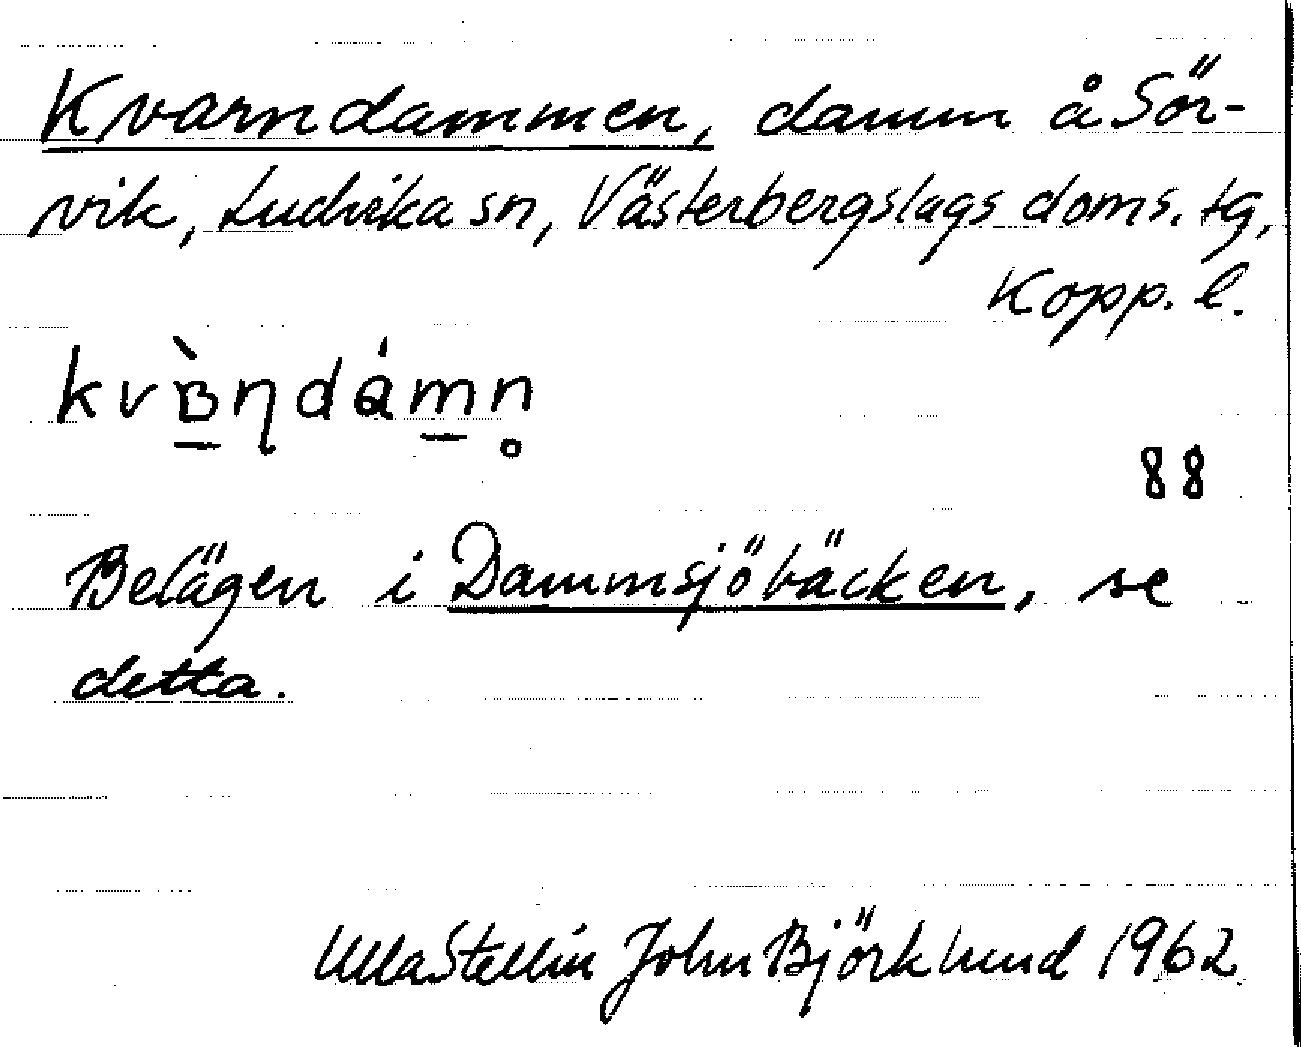 Kvarndammen, damm å Sör-
vik, Ludvika sn, Västerbergslags doms. tg,
Kopp. l.
kvʙ̠̀ɳdám̠n̥
88
Belägen i Dammsjöbäcken, se
detta.
Ulla Stellin John Björklund 1962